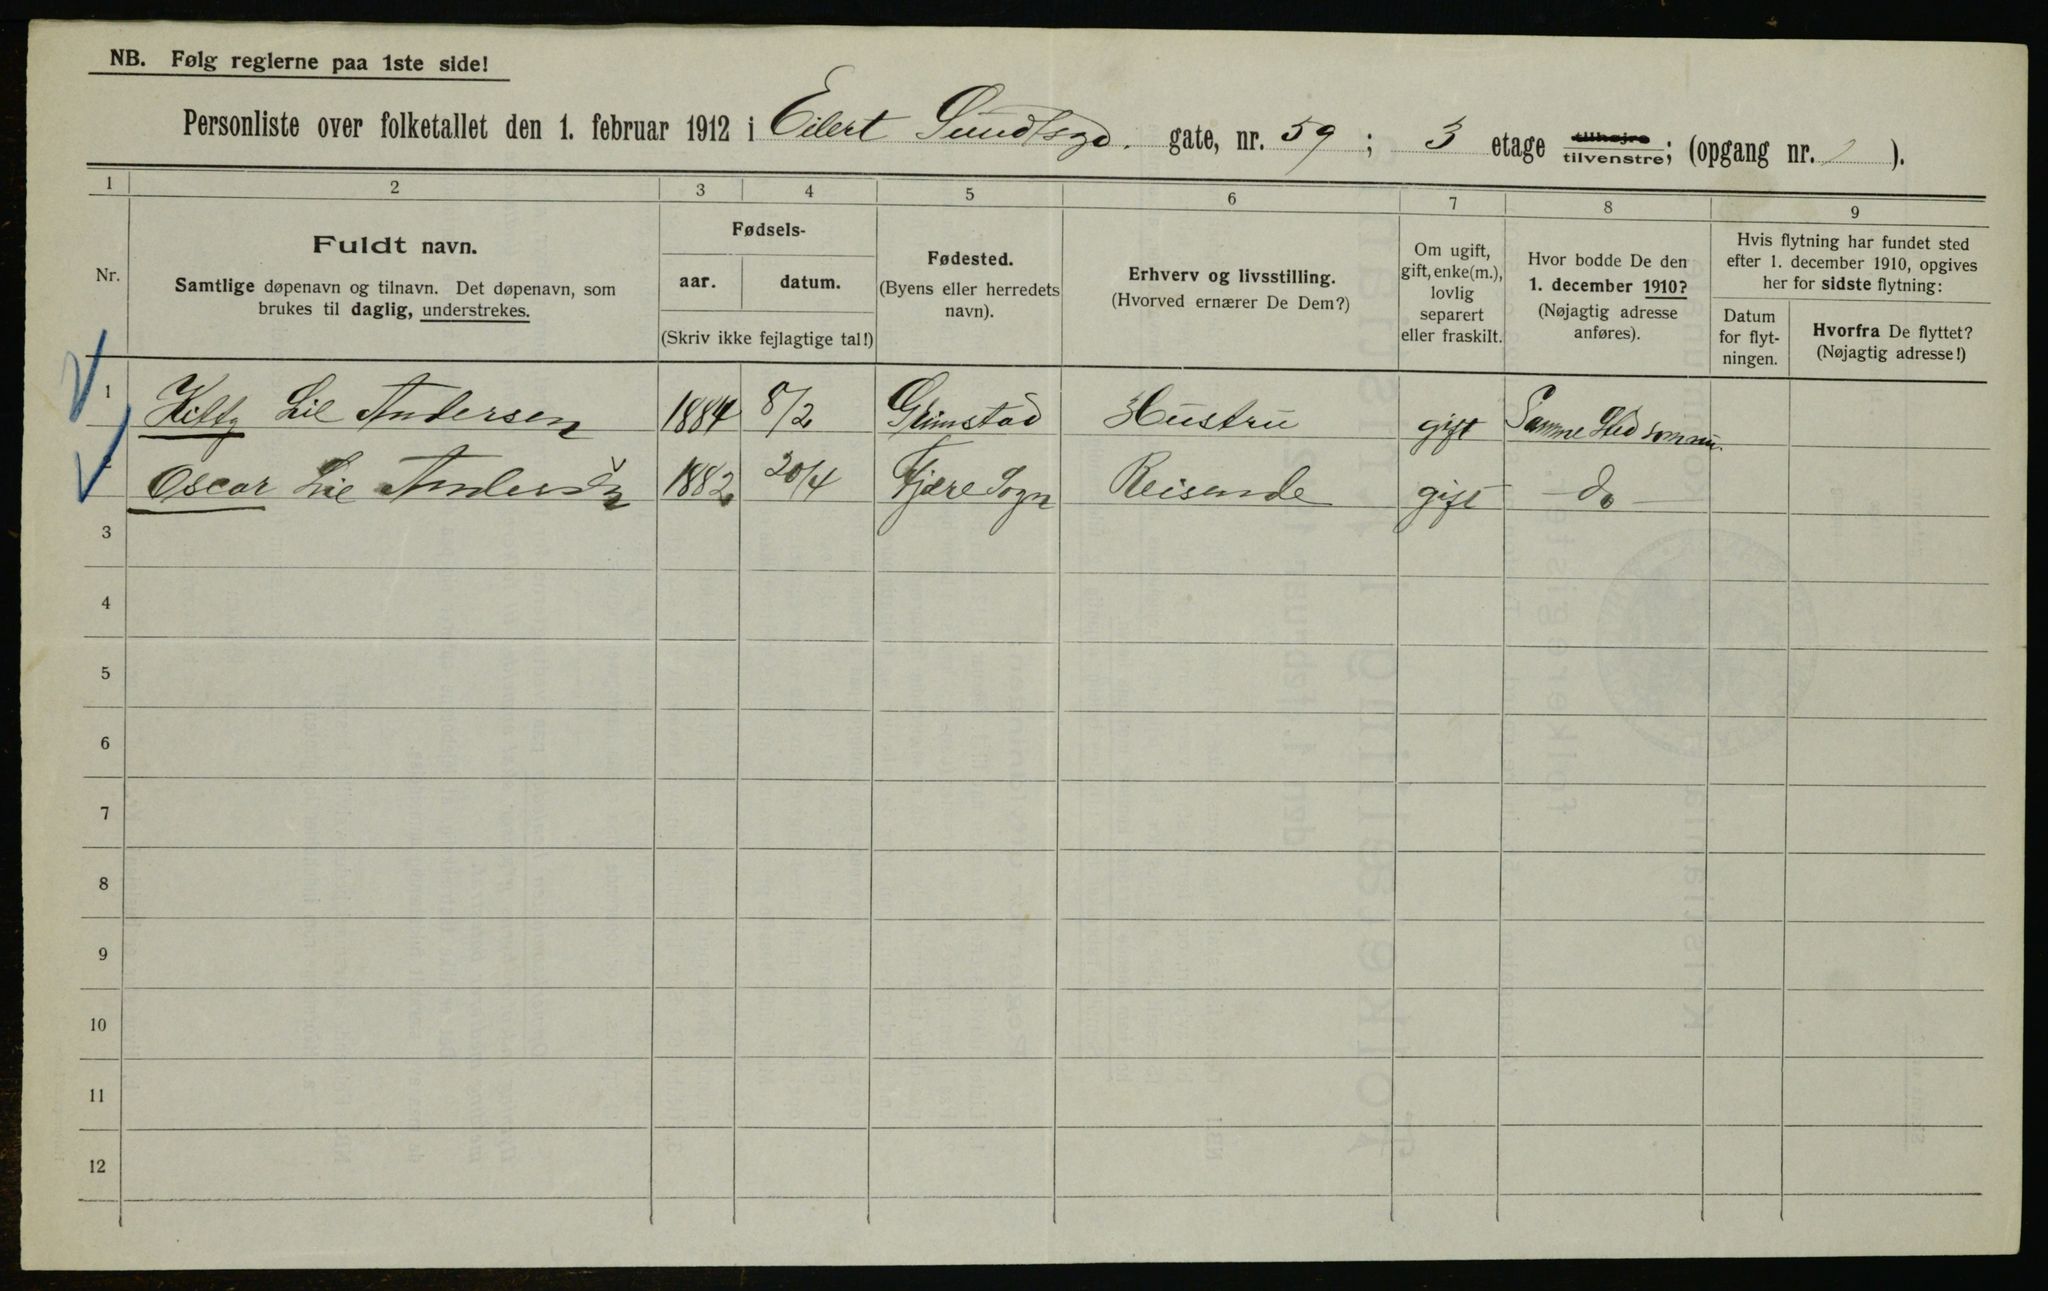 NB. Følg reglerne paa 1ste side!
Personliste over folketallet den 1. februar 1912 i Eilert Sundtsgd. gate, nr. 59; 3 etage tilhøjre tilvenstre; (opgang nr. ).
1 2 3 4 5 6 7 8 9
Nr.
Fuldt navn.
Samtlige døpenavn og tilnavn. Det døpenavn, som
brukes til daglig, understrekes.
Fødsels-
aar. datum.
(Skriv ikke fejlagtige tal!)
Fødested.
(Byens eller herredets
navn).
Erhverv og livsstilling.
(Hvorved ernærer De Dem?)
Om ugift,
gift, enke(m.),
lovlig
separert
eller fraskilt.
Hvor bodde De den
1. december 1910?
(Nøjagtig adresse
anføres).
Hvis flytning har fundet sted
efter 1. december 1910, opgives
her for sidste flytning:
Datum
for flyt-
ningen.
Hvorfra De flyttet?
(Nøjagtig adresse!)
1 Kitty Lie Andersen 1884 8/2 Grimstad Hustru gift Samme Sted som nu.
2 Oscar Lie Andersen 1882 20/4 Fjære Sogn Reisende gift do
3
4
5
6
7
8
9
10
11
12